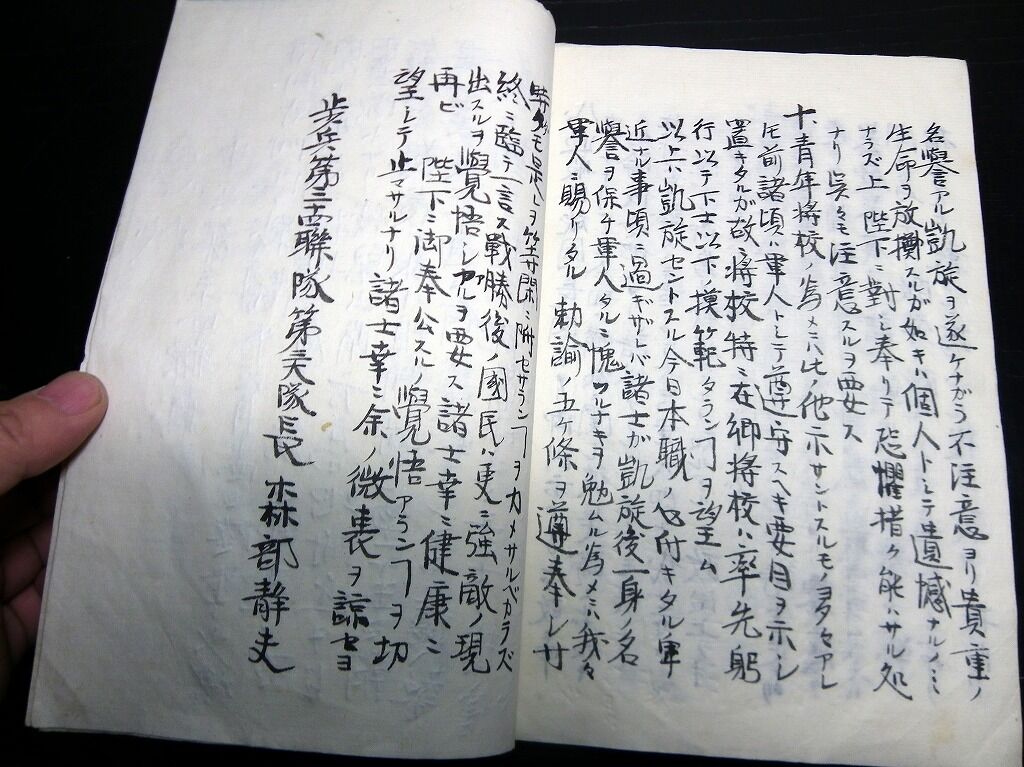 名誉アル凱旋ヲ遂ケナガラ不注意ヨリ貴重ノ
生命ヲ放擲スルガ如キハ個人トシテ遺憾ナルノミ
ナラズ上 陛下ニ対シ奉リテ恐懼措ク能ハサル処
ナリ呉々モ注意スルヲ要ス
十、青年将校ノ為メニハ此ノ他示サントスルモノヨタセアレ
ド前諸項ハ軍人トシテ遵守スヘキ要目ヲ示シ
置キタルガ故ニ将校特ニ在郷将校ハ率先躬
行以テ下士以下ノ摸範タランヿヲ望ム
以上ハ凱旋セントスル今日本職ノ心付キタル軍
近ナル事項ニ過ギザレバ諸士ガ凱旋後一身ノ名
誉ヲ保チ軍人タルニ愧ツルナキヲ勉ムル為メニハ我々
軍人ニ賜リタル 勅諭ノ五ケ條ヲ遵奉シ サ
モ是レヲ等閑ニ附セサランヿヲ力メサルベカラズ
終ニ臨テ一言ス戦勝後ノ國民ハ更ニ強敵ノ現
出スルヲ覺悟シアルヲ要ス諸士幸ニ健康ニ
再ビ 陛下ニ御奉公スルノ覺悟アランヿヲ切
望シテ止マサルナリ諸士幸ニ余ノ微衷ヲ諒セヨ
歩兵第三十四聯隊第三大隊長 森部静夫